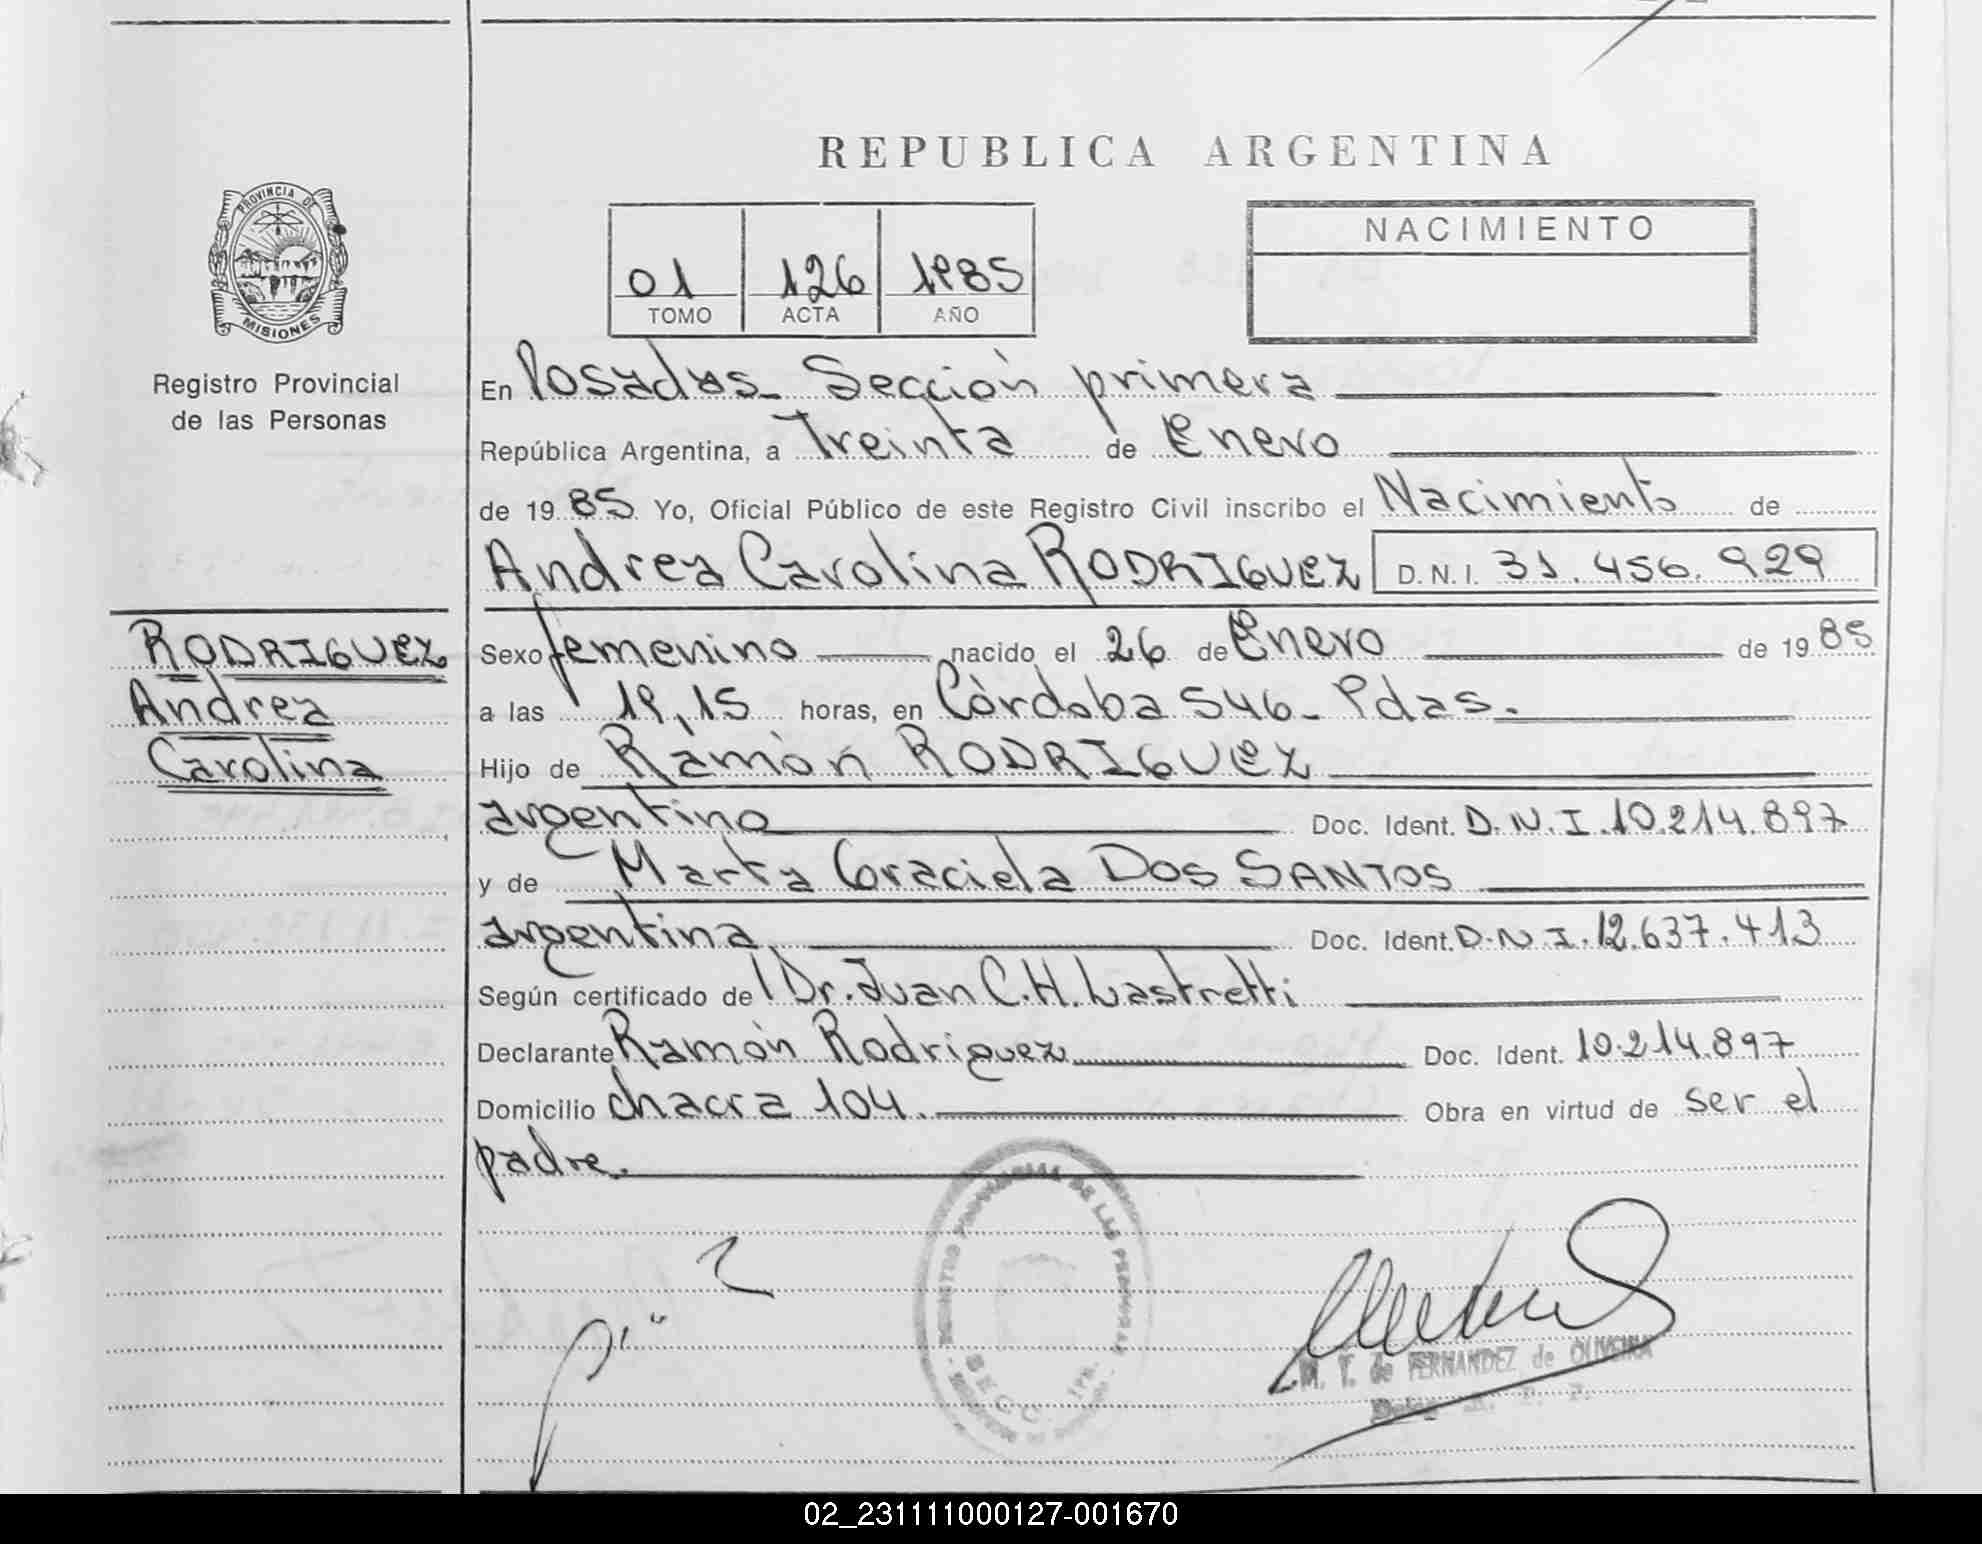 REPUBLICA ARGENTINA
PROVINCIA DE
MISIONES
Registro Provincial
de las Personas
01 126 1985
TOMO ACTA AÑO
NACIMIENTO
En Posadas - Sección primera
República Argentina, a Treinta de Enero
de 19 85 Yo, Oficial Público de este Registro Civil inscribo el Nacimiento de
Andrea Carolina RODRIGUEZ D.N.I. 31.456.929
RODRIGUEZ
Andrea
Carolina
Sexo femenino nacido el 26 de Enero de 19 85
a las 19,15 horas, en Córdoba 546 - Pdas.
Hijo de Ramón RODRIGUEZ
argentino Doc. Ident. D.N.I. 10.214.897
y de Marta Graciela DOS SANTOS
argentina Doc. Ident. D.N.I. 12.637.413
Según certificado de Dr. Juan C.H. Lastretti
Declarante Ramón Rodriguez Doc. Ident. 10.214.897
Domicilio chacra 104. Obra en virtud de ser el
padre.
DE LAS PERSONAS
SECC. 1RA.
M. T. de FERNANDEZ de OLIVEIRA
02_231111000127-001670